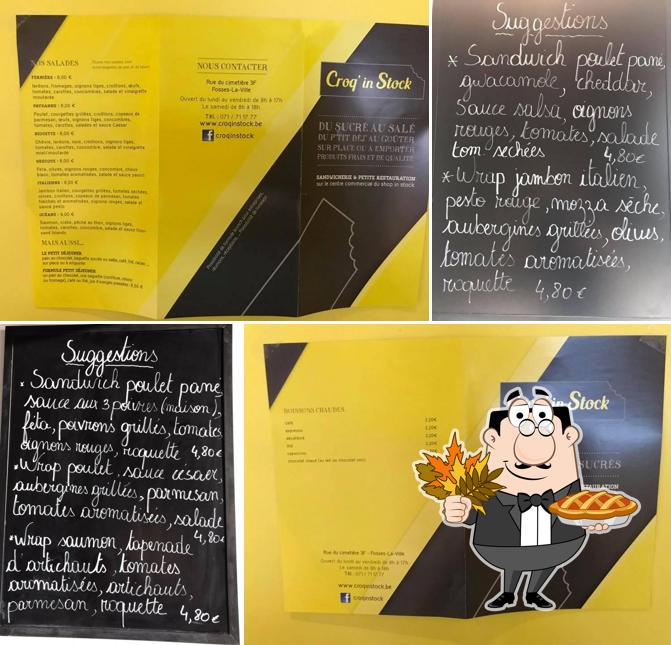 NOS SALADES
FERMIÈRE : 8,00 €
lardons, fromages, oignons grillés, croûtons, œufs,
tomates, carottes, concombres, salade et vinaigrette
moutarde
PAYSANNE : 8,00 €
Poulet, courgettes grillées, croûtons, copeaux de
parmesan, œufs, oignons tiges, concombres,
tomates, carottes, salades et sauce Caesar
BIQUETTE : 9,00 €
Chèvre, lardons, noix, croûtons, oignons tiges,
tomates, carottes, concombre, salade et vinaigrette
miel/moutarde
GRECQUE : 8,00 €
Feta, olives, oignons rouges, concombre, choux
blanc, tomates aromatisées, salade et sauce yaourt
ITALIENNE : 8,00 €
Jambon italien, courgettes grillées, tomates séchées,
olives, croûtons, copeaux de parmesan, tomates
fraîches et aromatisées, oignons rouges, salade et
sauce pesto
OCÉANE : 9,00 €
Saumon, scampi, pêche au thon, oignons tiges,
tomates, carottes, concombre, salade et sauce
MAIS AUSSI...
LE PETIT DÉJEUNER
FORMULE PETIT DÉJEUNER
NOUS CONTACTER
Rue du cimetière 3F
Fosses-La-Ville
Ouvert du lundi au vendredi de 8h à 17h
Le samedi de 8h à 18h.
TÉL : 071 / 71 17 77
www.croqinstock.be
croqinstock
Croq' in Stock
DU SUCRÉ AU SALÉ
DU P'TIT DEJ' AU GOÛTER
SUR PLACE OU À EMPORTER
PRODUITS FRAIS ET DE QUALITÉ
SANDWICHERIE & PETITE RESTAURATION
sur le centre commercial du shop in stock
Suggestions
* Sandwich poulet pané,
guacamole, cheddar,
sauce salsa, oignons
rouges, tomates, salade
tom séchées 4,80€
* Wrap jambon italien,
pesto rouge, mozza sèche,
aubergines grillées, olives,
tomates aromatisées,
roquette 4,80€
Suggestions
* Sandwich poulet pané
sauce aux 3 poivres (maison),
féta, poivrons grillés, tomates
oignons rouges, roquette 4,80€
* Wrap poulet, sauce césaer,
aubergines grillées, parmesan,
tomates aromatisées, salade
4,80€
* Wrap saumon, tapenade
d'artichauts, tomates
aromatisées, artichauts,
parmesan, roquette 4,80€
BOISSONS CHAUDES
café 2,20€
expresso 2,20€
décaféiné 2,20€
thé 2,20€
cappuccino
chocolat chaud (au lait ou chocolat noir)
Rue du cimetière 3F - Fosses-La-Ville
Ouvert du lundi au vendredi de 8h à 17h
Le samedi de 8h à 18h
TÉL : 071 / 71 17 77
www.croqinstock.be
croqinstock
in Stock
SUCRÉS